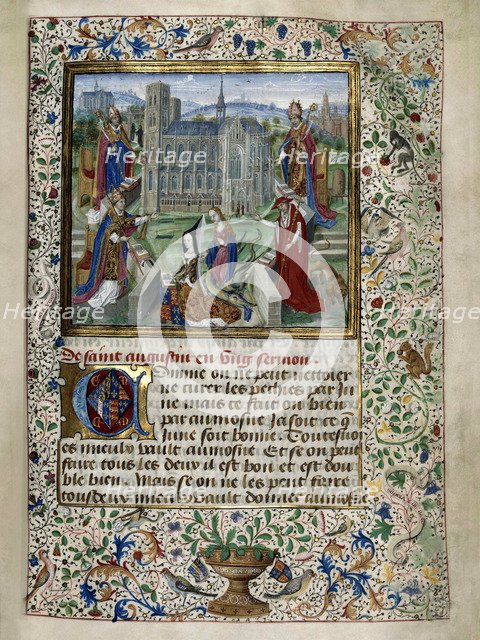 Heritage Heritage
Heritage Heritage
De saint augustin en ung sermon.
Comme on ne peut nettoier
ne curer les pechies par Ju
ne mais ce fait on bien
par aumosne Ja soit ce q
June soit bonne. Toutesuoi
es mieulx vault aumosne. Et se on peut
faire tous les deux il est bon et est dou
ble bien. Mais se on ne les peut faire
tous deux mieulx vault donner aumosne